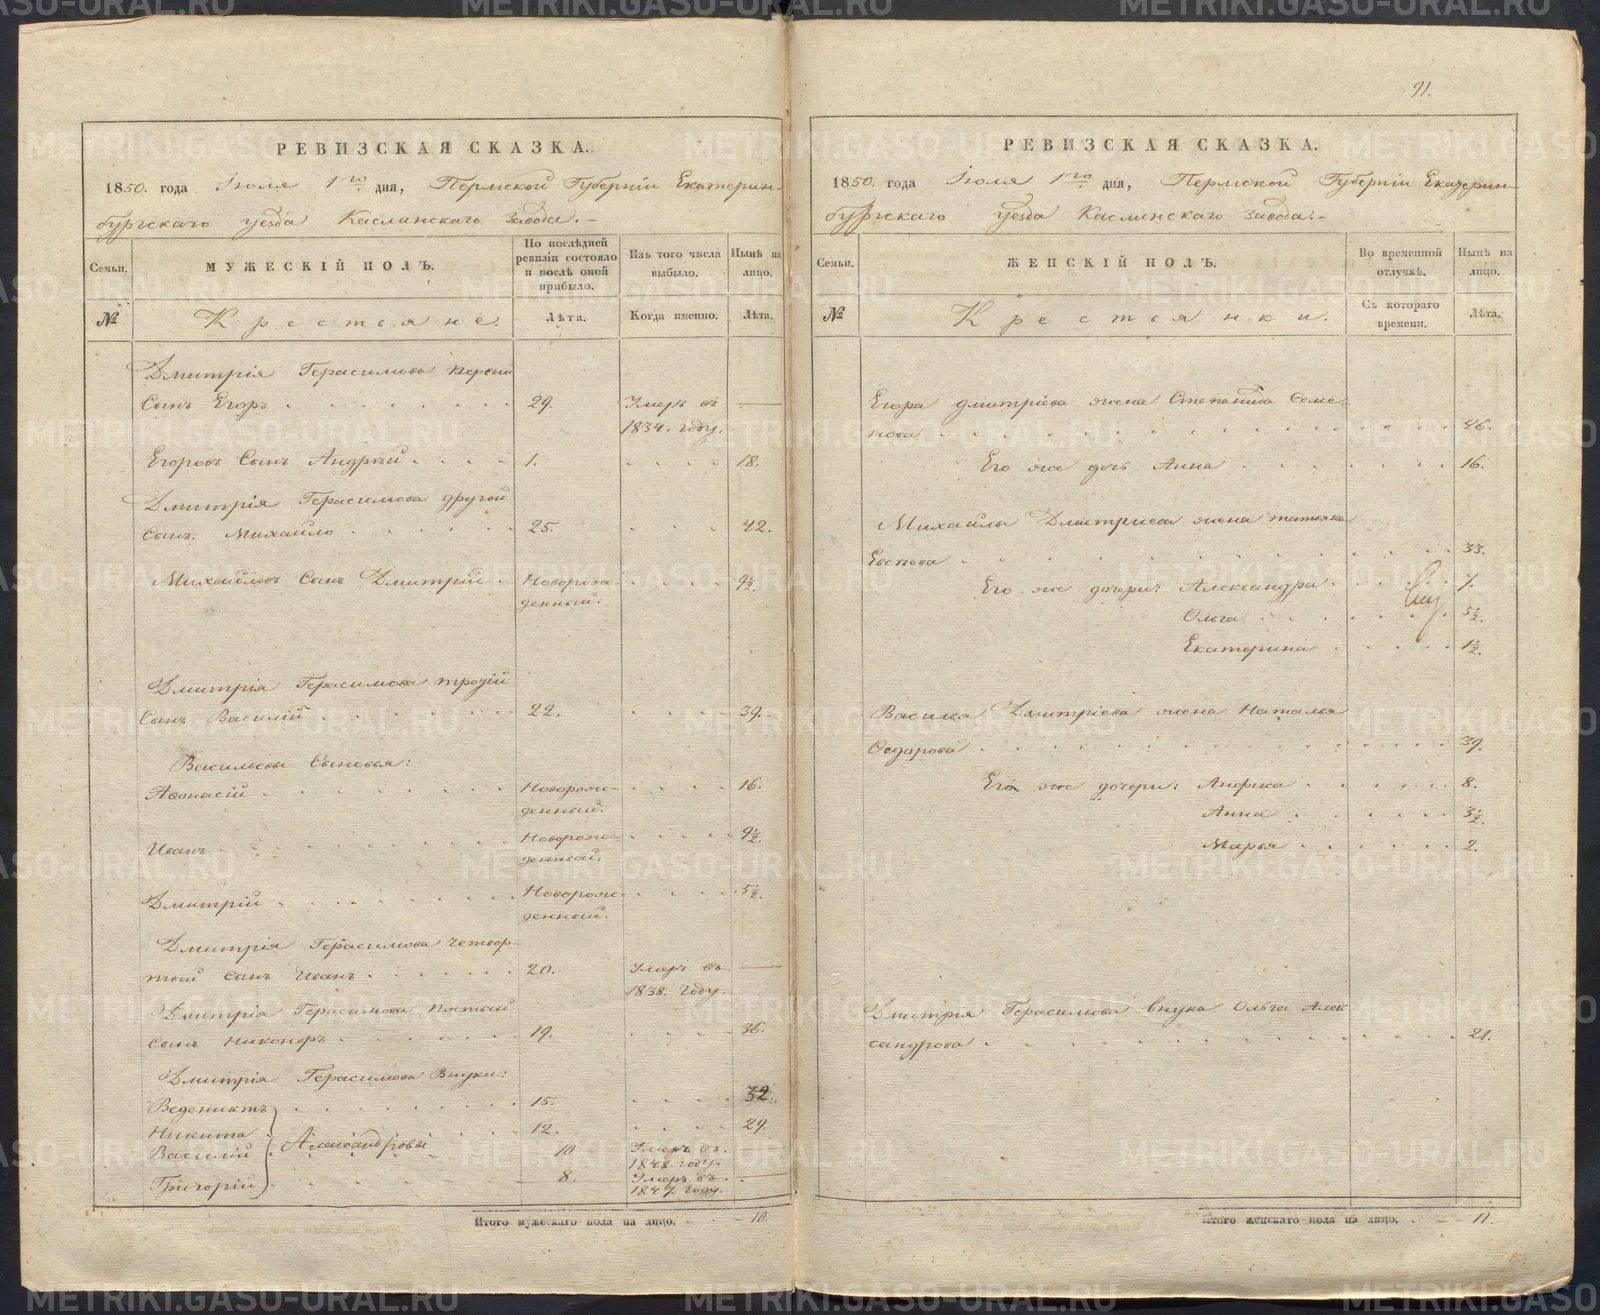 91.
РЕВИЗСКАЯ СКАЗКА.
1850. года Іюля 1го дня, Пермской Губерніи Екатерин-
бургскаго уезда Каслинскаго Завода.-
Семьи.
МУЖЕСКІЙ ПОЛЪ.
По послѣдней ревизіи состояло и послѣ оной прибыло.
Изъ того числа выбыло.
Нынѣ на лицо.
№
Крестьяне.
Лѣта.
Когда именно.
Лѣта.
Дмитрія Герасимова первый
Сынъ Егоръ 29. Умеръ въ —
1834. году.
Егоровъ Сынъ Андрѣй 1. 18.
Дмитрія Герасимова другой
Сынъ. Михайло 25. 42.
Михайловъ Сынъ Дмитрій Новорож- 9½.
денный.
Дмитрія Герасимова третій
Сынъ Василій 22. 39.
Васильевы Сыновья:
Афонасій Новорож- 16.
денный.
Иванъ Новорож- 9½.
денный.
Дмитрій Новорож- 5½.
денный.
Дмитрія Герасимова четвер-
тый сынъ Иванъ 20. Умеръ въ —
1838. году.
Дмитрія Герасимова пятый
сынъ Никоноръ 19. 36.
Дмитрія Герасимова Внуки:
Веденихтъ 15. 32.
Никита 12. 29.
Василій Александровы 10 Умеръ въ
1848 году.
Григорій 8. Умеръ въ —
1847. году.
Итого мужескаго пола на лицо. 10.
РЕВИЗСКАЯ СКАЗКА.
1850. года Іюля 1го дня, Пермской Губерніи Екатерин-
бургскаго уезда Каслинскаго Завода.-
Семьи.
ЖЕНСКІЙ ПОЛЪ.
Во временной отлучкѣ.
Нынѣ на лицо.
№
Крестьянки.
Съ котораго времени.
Лѣта.
Егора Дмитріева жена Степанида Семе-
нова 46.
Его же дочь Анна 16.
Михайлы Дмитриева жена татьяна
33.
Его же дочери: Александра 7.
Ольга 5½.
Екатерина 1½.
Василья Дмитріева жена Наталья
Ѳедорова 39.
Его же дочери: Анфиса 8.
Анна 3½.
Марья 2.
Дмитрія Герасимова внука Ольга Алек
сандрова 21.
Итого женскаго пола на лицо. 11.
METRIKI.GASO-URAL.RU